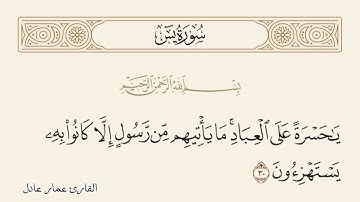 سُورَةُ يسٓ
بِسْمِ ٱللَّهِ ٱلرَّحْمَٰنِ ٱلرَّحِيمِ
يَٰحَسْرَةً عَلَى ٱلْعِبَادِۚ مَا يَأْتِيهِم مِّن رَّسُولٍ إِلَّا كَانُوا۟ بِهِۦ
يَسْتَهْزِءُونَ ٣٠
القارئ عمار عادل